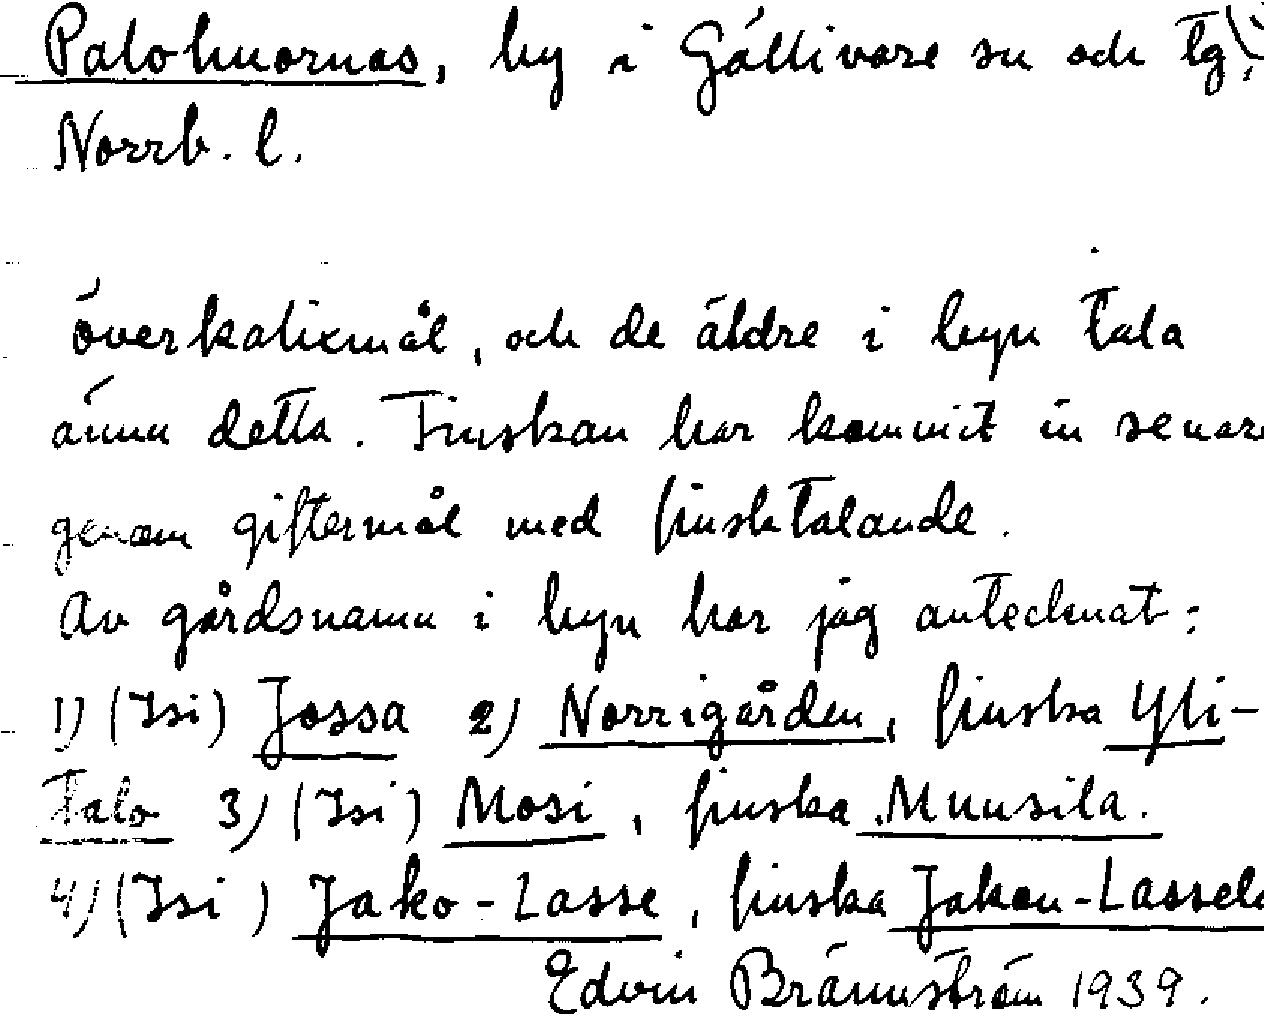 Palohuornas, by i Gällivare sn och tg,
Norrb. l.
överkalixmål, och de äldre i byn tala
ännu detta. Finskan har kommit in senare
genom giftermål med finsktalande.
Av gårdsnamn i byn har jag antecknat:
1) (Isi) Jossa 2) Norrigården, finska Yli-
talo 3) (Isi) Mosi, finska Muusila.
4) (Isi) Jako-Lasse, finska Jakou-Lassela
Edvin Brännström 1939.